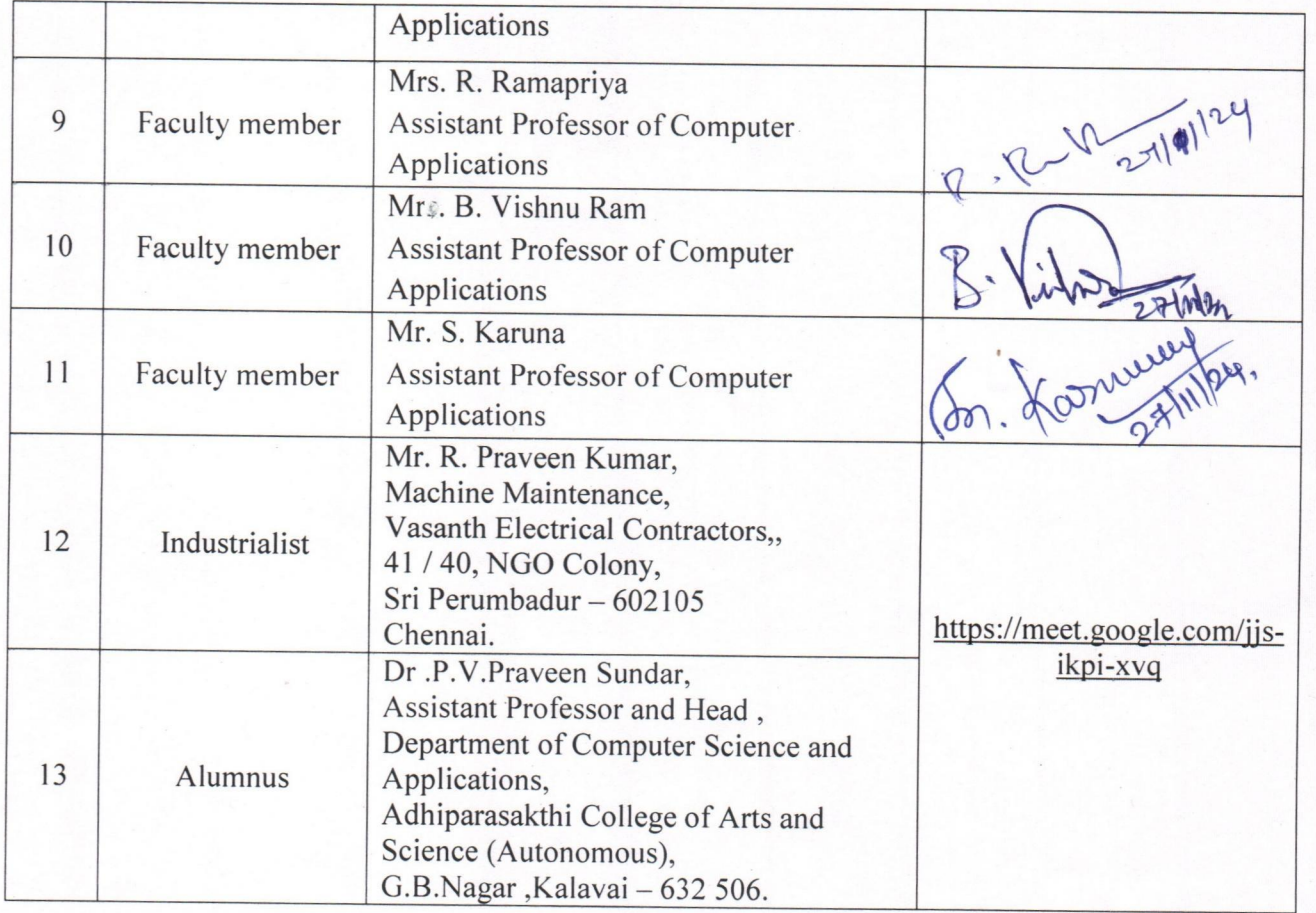 Applications
9
Faculty member
Mrs. R. Ramapriya
Assistant Professor of Computer
Applications
27/11/24
10
Faculty member
Mr. B. Vishnu Ram
Assistant Professor of Computer
Applications
B. Vishnu
11
Faculty member
Mr. S. Karuna
Assistant Professor of Computer
Applications
27/11/24.
12
Industrialist
Mr. R. Praveen Kumar,
Machine Maintenance,
Vasanth Electrical Contractors,,
41 / 40, NGO Colony,
Sri Perumbadur – 602105
Chennai.
https://meet.google.com/jjs-
ikpi-xvq
13
Alumnus
Dr .P.V.Praveen Sundar,
Assistant Professor and Head ,
Department of Computer Science and
Applications,
Adhiparasakthi College of Arts and
Science (Autonomous),
G.B.Nagar ,Kalavai – 632 506.